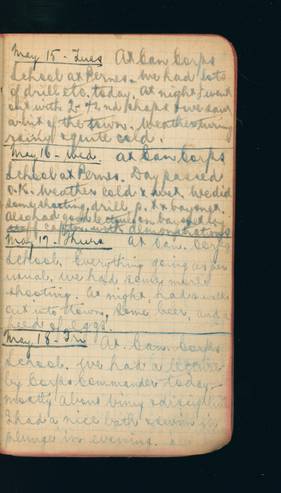 May 15 - Tues At Can Corps
School at Pernes. We had lots
of drill etc. today. At night I went
out with 2 chaps & we saw
a bit of the town. Weather turning
rainy & quite cold.
May 16 - Wed. At Can Corps
School at Pernes. Day passed
O.K. Weather cold & wet. We did
some shooting, drill, p.t & bayonet.
Also had good lecture on bayonet by
with demonstrations
May 17 - Thurs At Can. Corps
School. Everything going as per
usual. We had some more
shooting. At night, had a walk
out into town, some beer, and a
feed of eggs.
May 18 - Fri At Can. Corps
School. We had a lecture
by Corps Commander today -
mostly about & discipline
I had a nice bath & swim in
plunge in evening.